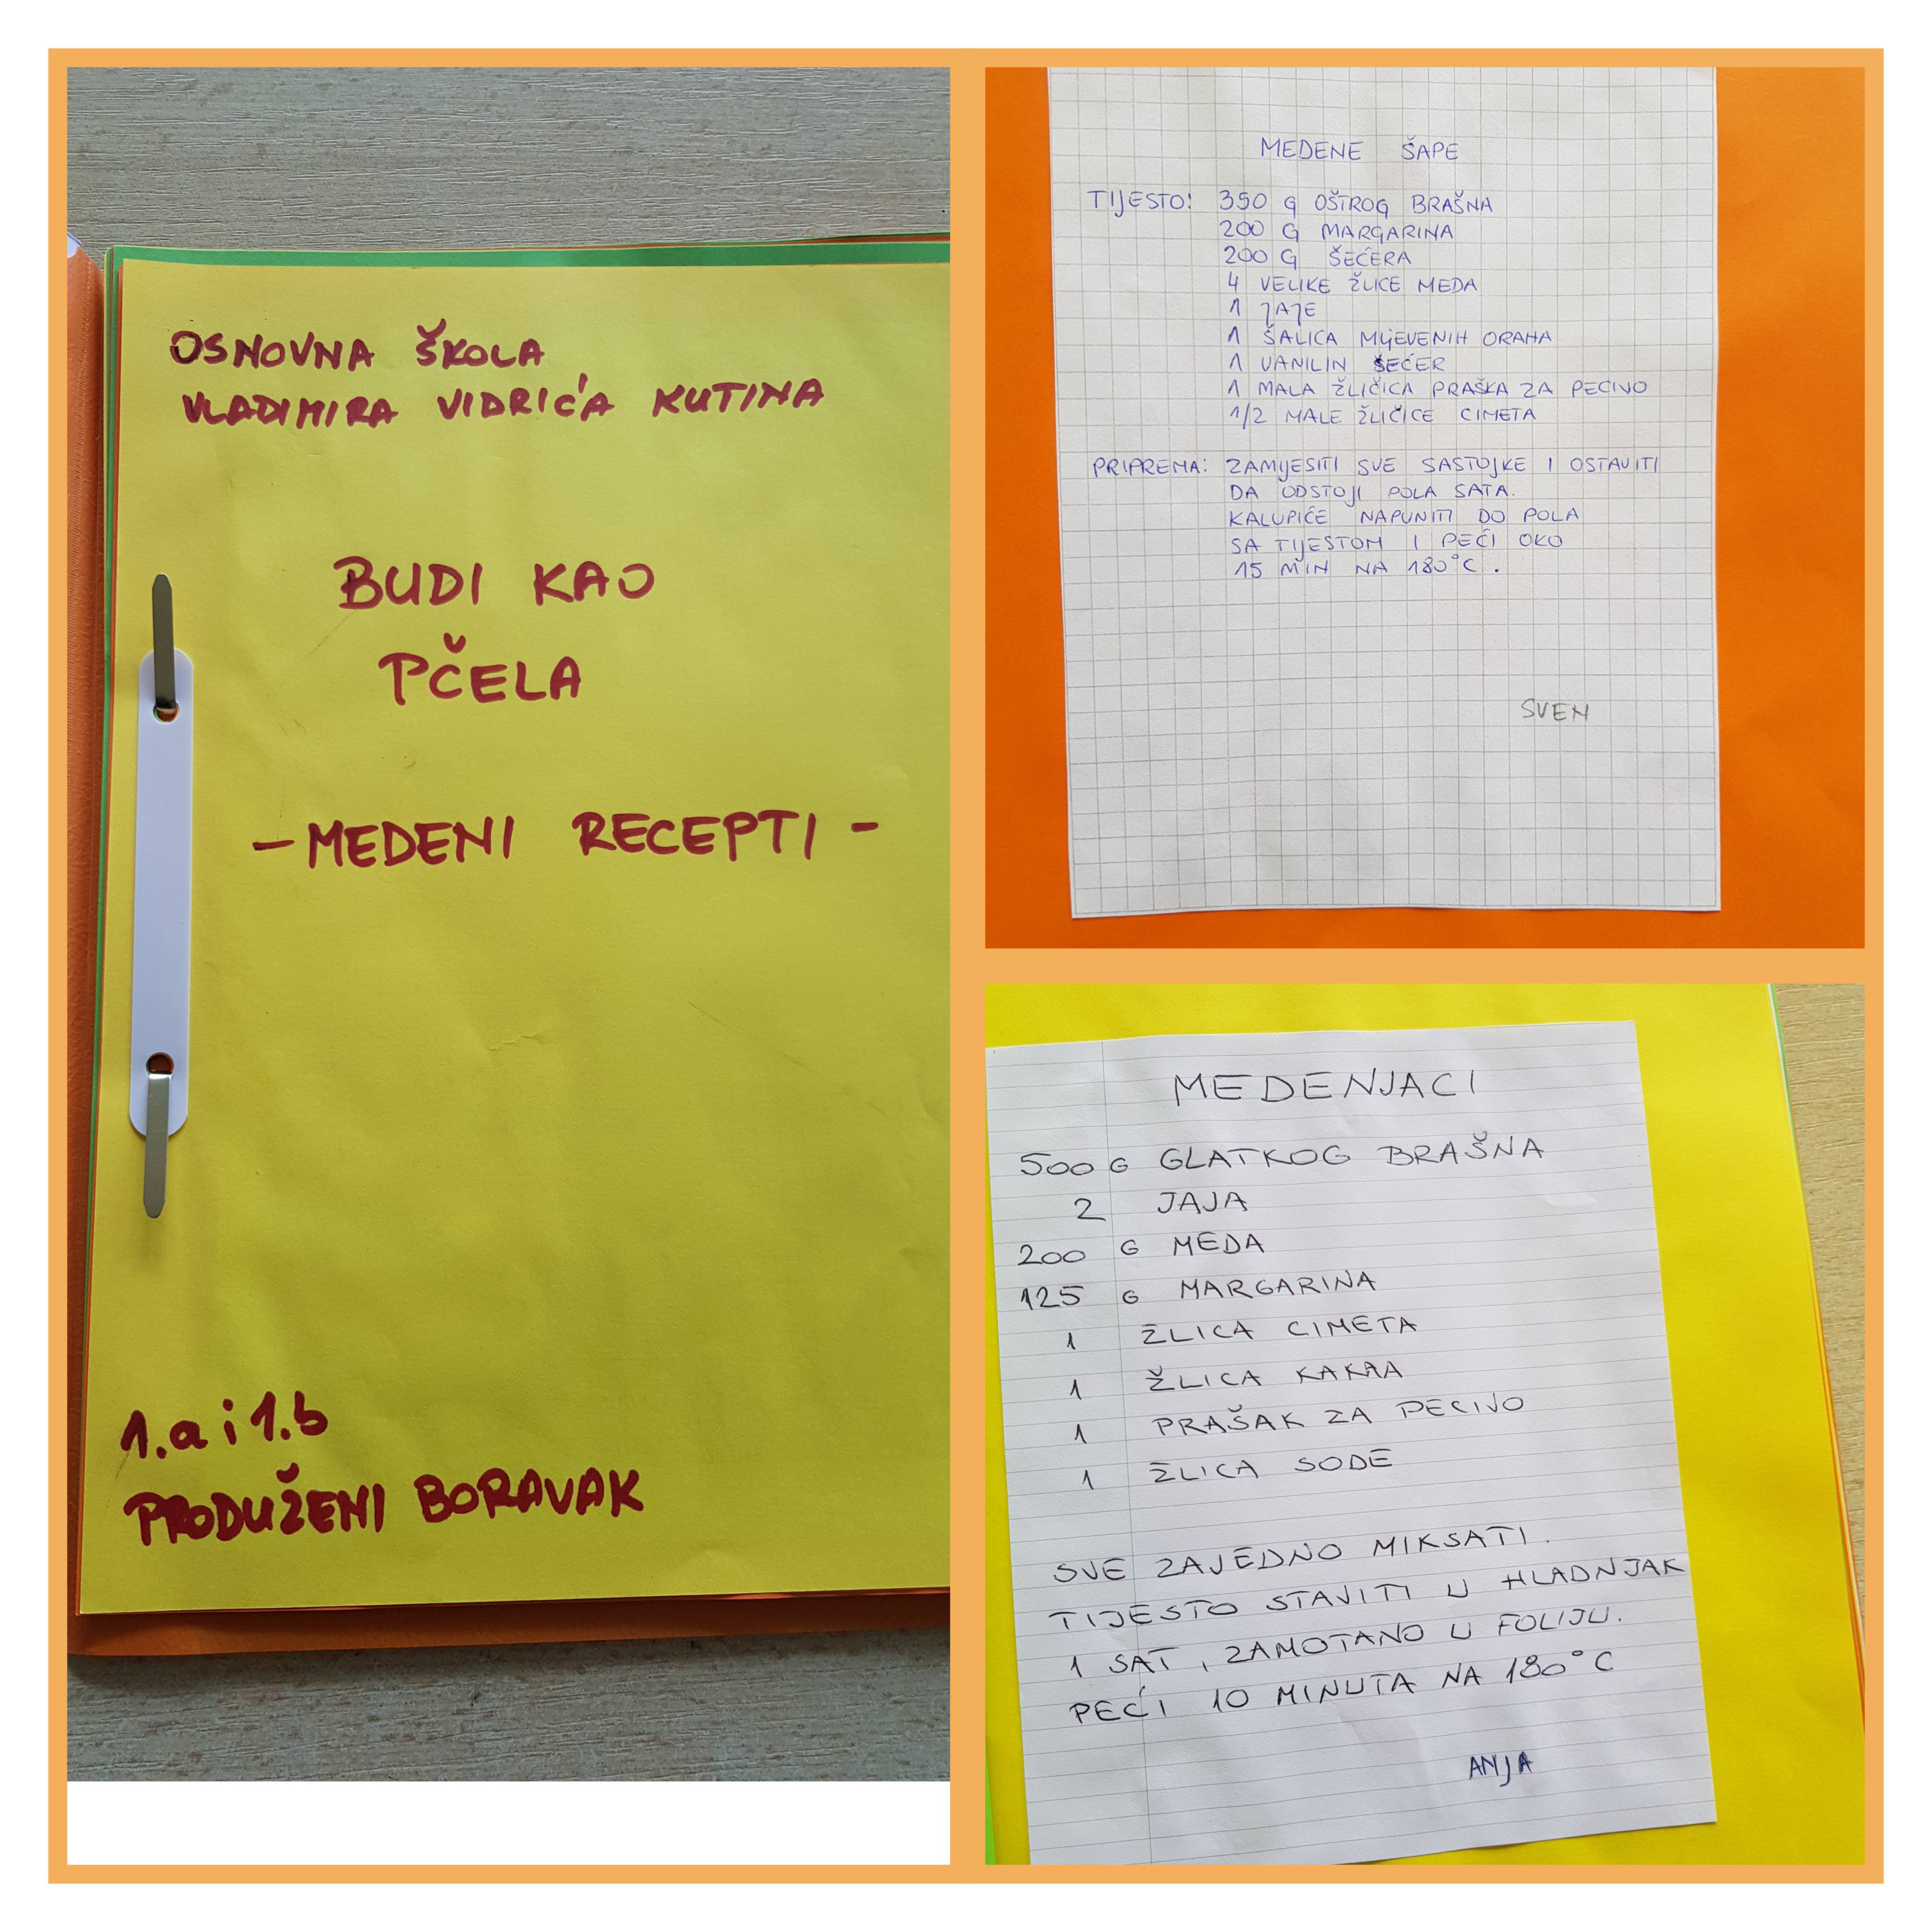 OSNOVNA ŠKOLA
VLADIMIRA VIDRIĆA KUTINA
BUDI KAO
PČELA
- MEDENI RECEPTI -
1.a i 1.b
PRODUŽENI BORAVAK
MEDENE ŠAPE
TIJESTO: 350 g OŠTROG BRAŠNA
200 G MARGARINA
200 G ŠEĆERA
4 VELIKE ŽLICE MEDA
1 JAJE
1 ŠALICA MLJEVENIH ORAHA
1 VANILIN ŠEĆER
1 MALA ŽLIČICA PRAŠKA ZA PECIVO
1/2 MALE ŽLIČICE CIMETA
PRIPREMA: ZAMIJESITI SVE SASTOJKE I OSTAVITI
DA ODSTOJI POLA SATA.
KALUPIĆE NAPUNITI DO POLA
SA TIJESTOM I PEĆI OKO
15 MIN NA 180°C.
SVEN
MEDENJACI
500 G GLATKOG BRAŠNA
2 JAJA
200 G MEDA
125 G MARGARINA
1 ŽLICA CIMETA
1 ŽLICA KAKAA
1 PRAŠAK ZA PECIVO
1 ŽLICA SODE
SVE ZAJEDNO MIKSATI.
TIJESTO STAVITI U HLADNJAK
1 SAT, ZAMOTANO U FOLIJU.
PEĆI 10 MINUTA NA 180°C
ANJA